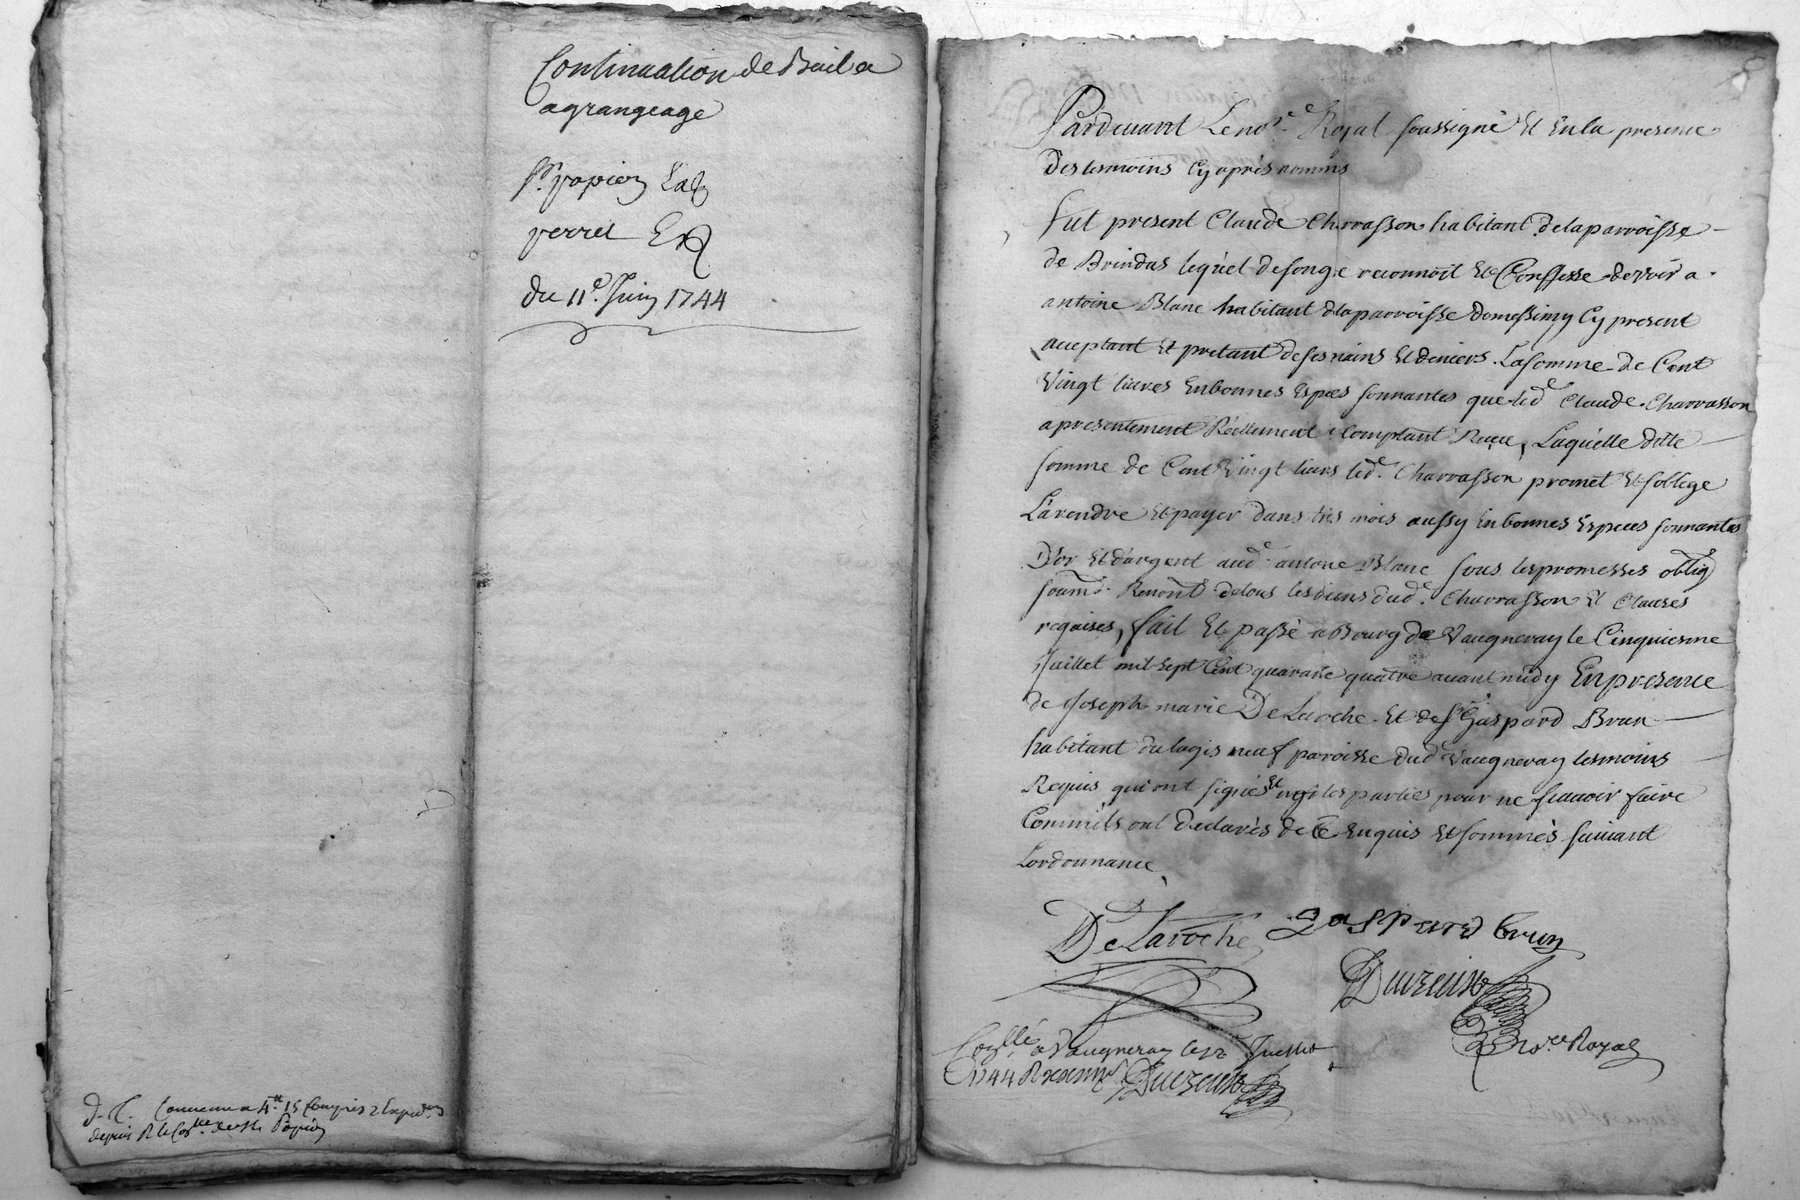 Continuation de Bail a
agrangeage
Sr. papion
perret
du 11e. Juin 1744
Convenu a 4tt 15
depuis R le Papion
Pardevant Le nore. Royal soussigné Et En la presence
Des tesmoins Cy aprés nommés
fut present Claude Charvasson habitant de la parroisse
de Brindas lequel de son gré reconnoit Et Conffesse devoir a
antoine Blanc habitant de la parroisse de messimy Cy present
acceptant Et pretant de ses mains Et deniers. La somme de Cent
Vingt livres En bonnes Espces sonnantes que led. Claude Charvasson
a presentement Réellement Comptant Reçue, Laquelle ditte
somme de Cent Vingt livres led. Charvasson promet Et soblige
La rendre Et payer dans trois mois aussy En bonnes Especes sonnantes
D'or Et d'argent aud. antoine Blanc sous les promesses oblig
soums. Renont de tous les biens dud. Charvasson Et Clauses
requises, fait Et passé a Bourg de Vaugneray le Cinquiesme
Juillet mil sept Cent quarante quatre avant midy En presence
de Joseph marie De Laroche Et de Sr Gaspard Brun
habitant du logis neuf paroisse dud Vaugneray tesmoins
Requis qui ont signés Et non les parties pour ne scavoir faire
Comm'ils ont declarés de Ce Enquis Et sommés suivant
Lordonnance
De Laroche gaspard brun
nore Royal
Conllé a Vaugneray le 12 Juillet
1744